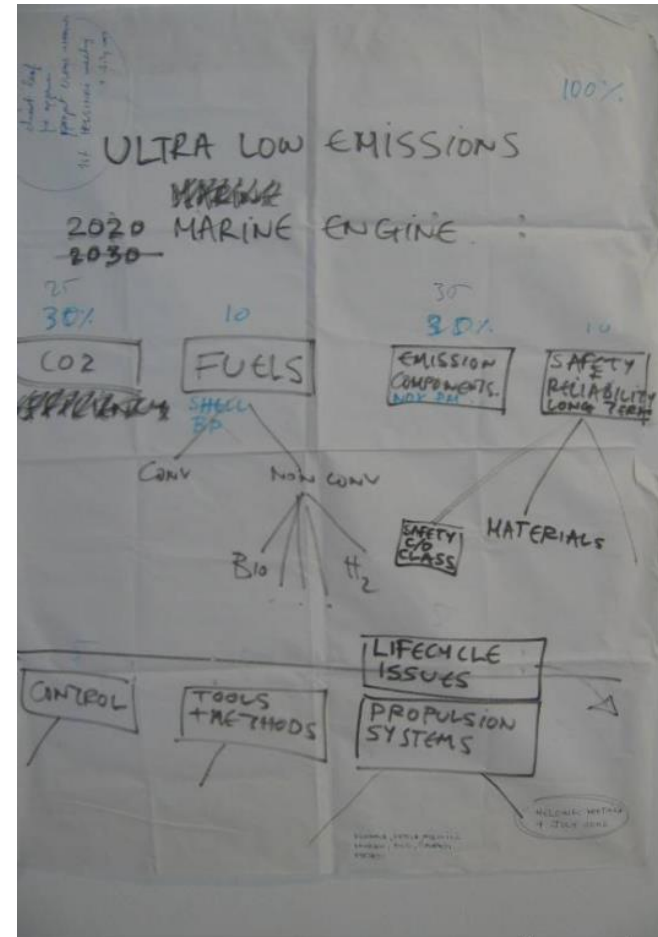 100%
ULTRA LOW EMISSIONS
2020 MARINE ENGINE :
2030
25
30%
10
30
30%
10
CO2
FUELS
EMISSION
COMPONENTS.
NOX PM
SAFETY
&
RELIABILITY
LONG TERM
SHELL
BP
CONV
NON CONV
BIO
H2
. . .
SAFETY
C/O
CLASS
MATERIALS
LIFECYCLE
ISSUES
CONTROL
TOOLS
+METHODS
PROPULSION
SYSTEMS